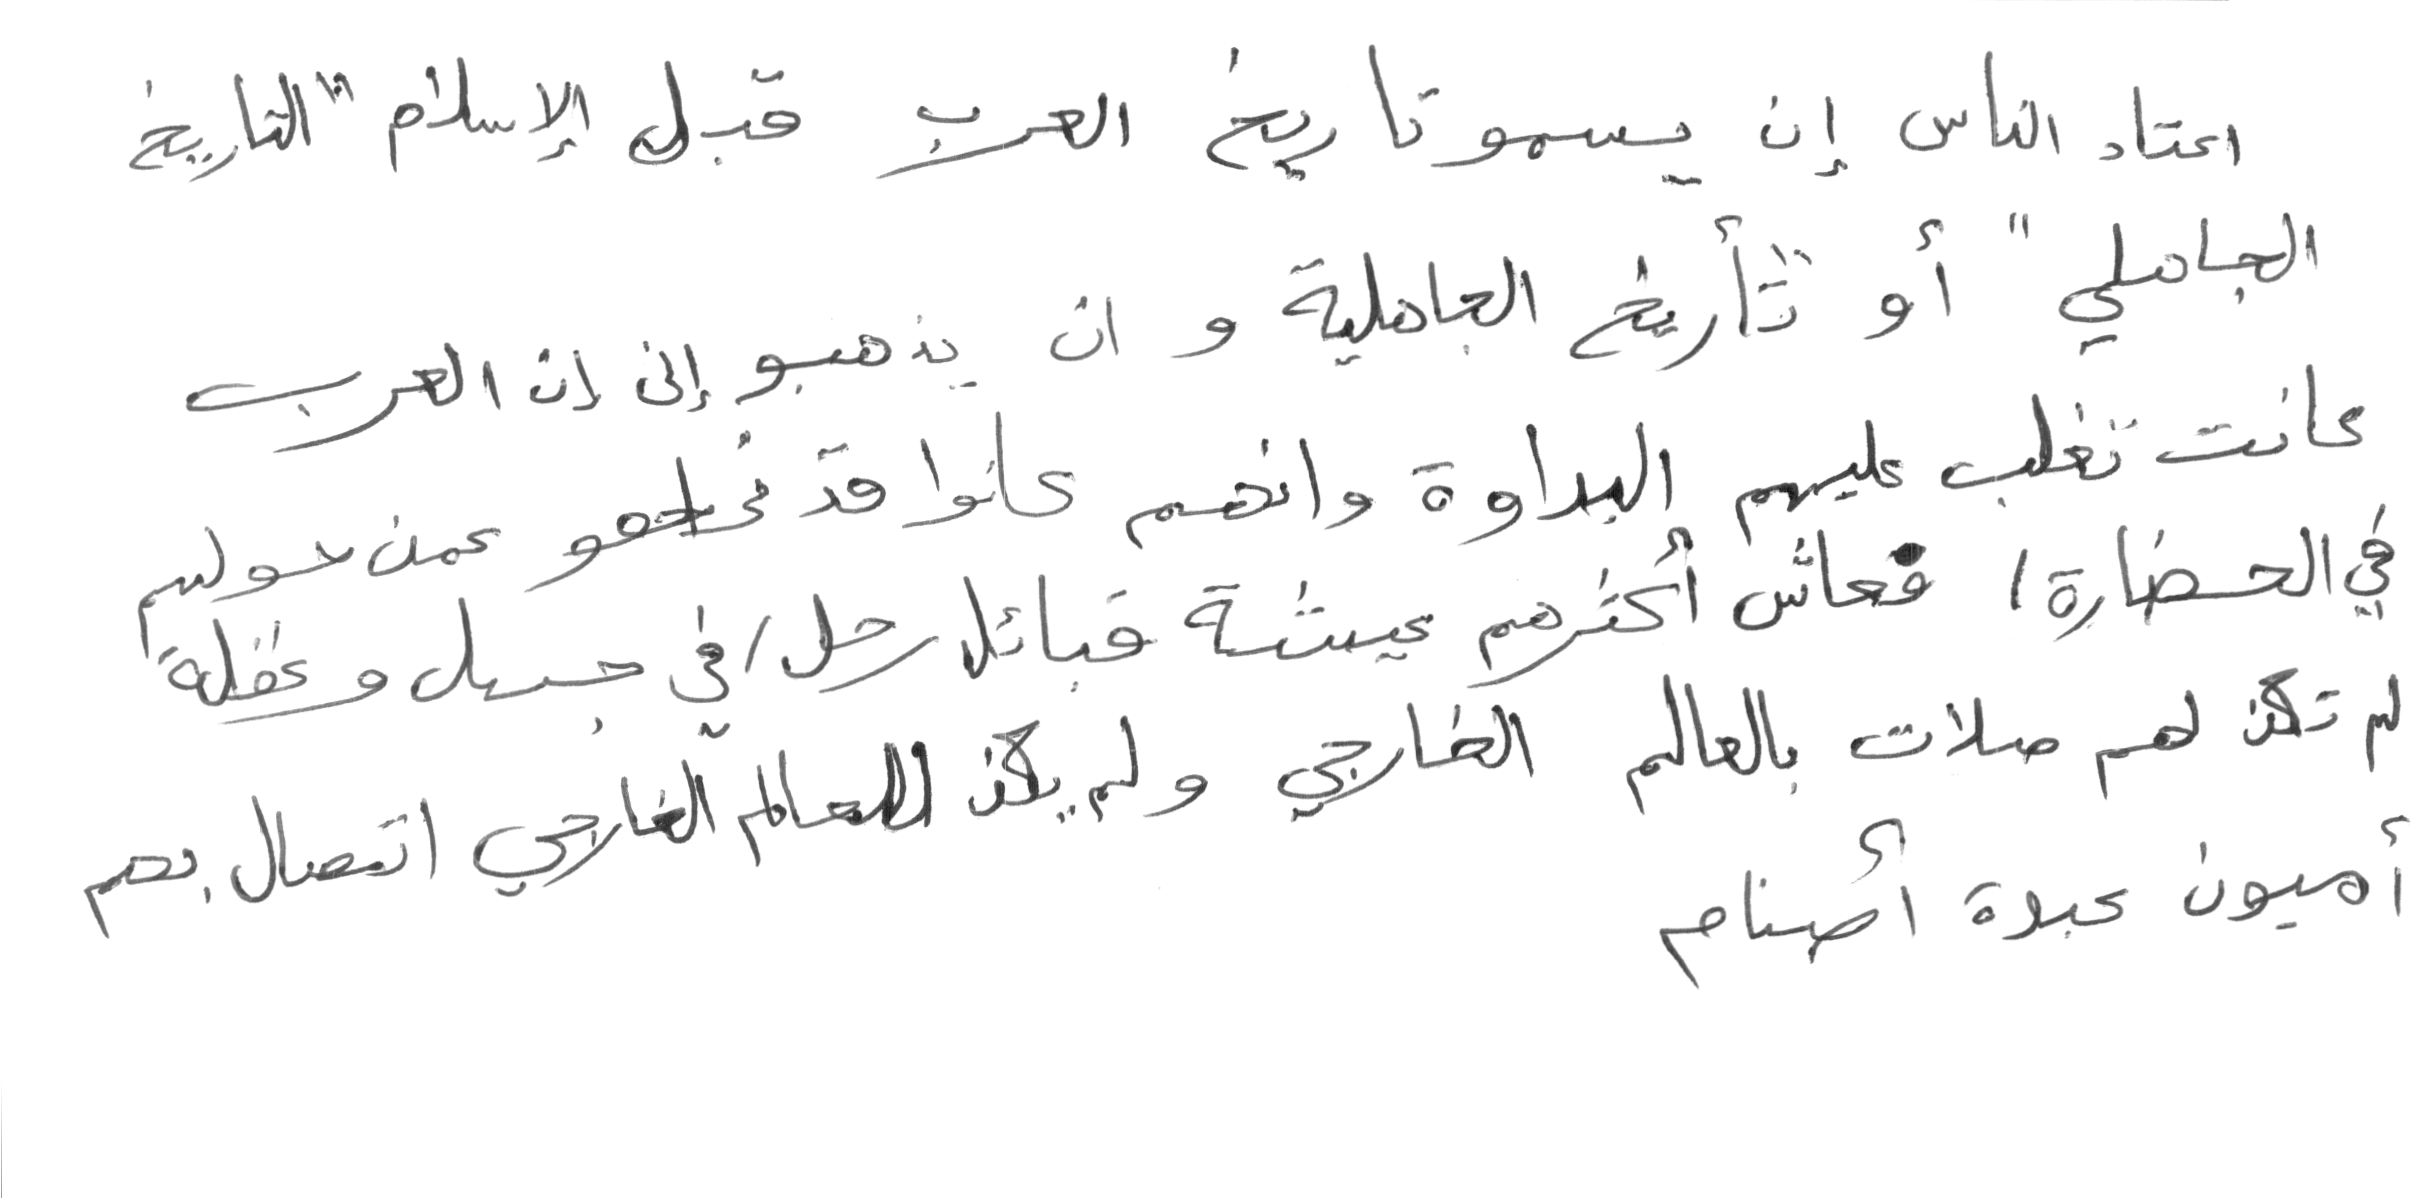 اعتاد الناس إن يسمو تاريخ العرب قبل الإسلام "التاريخ
الجاهلي" أو تأريخ الجاهلية و ان يذهبو إلى ان العرب
كانت تغلب عليهم البداوة وانهم كانوا قد تخلفو عمن حولهم
في الحضارة، فعاش أكثرهم عيشة قبائل رحل، في جهل وغفلة
لم تكن لهم صلات بالعالم الخارجي ولم يكن للعالم الخارجي اتصال بهم
أميون عبدة أصنام